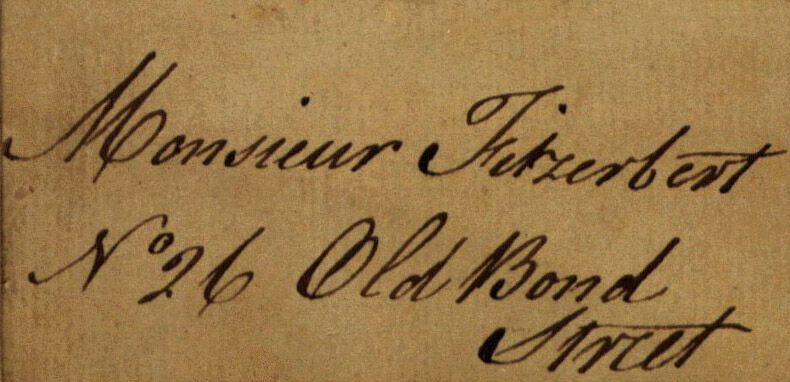 Monsieur Fitzerbert
No 26 Old Bond
Street